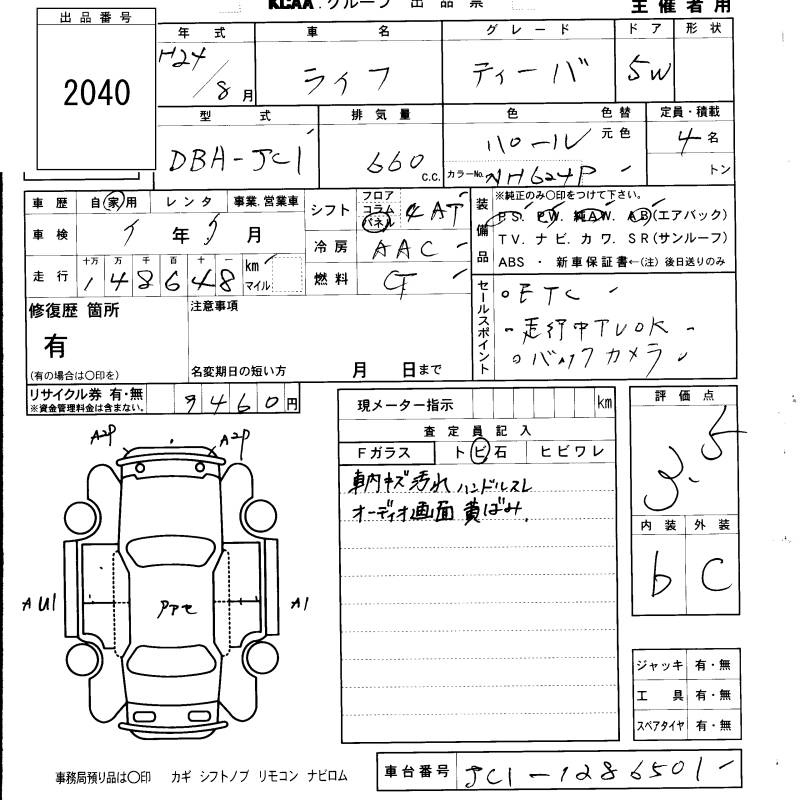 KCAA.グループ 出品票 主催者用
出品番号
2040
年式 車名 グレード ドア 形状
H24/8月 ライフ ディーバ 5W
型式 排気量 色 色替 定員・積載
DBA-JC1 660 C.C. パール 元色 4名
カラーNo. NH624P トン
車歴 自家用 レンタ 事業.営業車
車検 年 月
走行 十万 万 千 百 十 一
148648 km マイル
シフト フロア コラム パネル 4AT
冷房 AAC
燃料
装備品 ※純正のみ〇印をつけて下さい。
P.S. P.W. 純A.W. A.B(エアバック)
T.V. ナビ. カワ. S.R(サンルーフ)
ABS ・ 新車保証書←(注) 後日送りのみ
修復歴 箇所
有
(有の場合は〇印を)
注意事項
名変期日の短い方 月 日まで
セールスポイント
。ETC
-走行中TVOK-
。バックカメラ
リサイクル券 有・無
※資金管理料金は含まない。
9460円
現メーター指示 km
査定員記入
Fガラス トビ石 ヒビワレ
車内キズ汚れ ハンドルスレ
オーディオ画面 黄ばみ.
評価点
3.5
内装 外装
b C
A2P A2P
AU1 A1
ジャッキ 有・無
工具 有・無
スペアタイヤ 有・無
事務局預り品は〇印 カギ シフトノブ リモコン ナビロム
車台番号 JC1-1286501